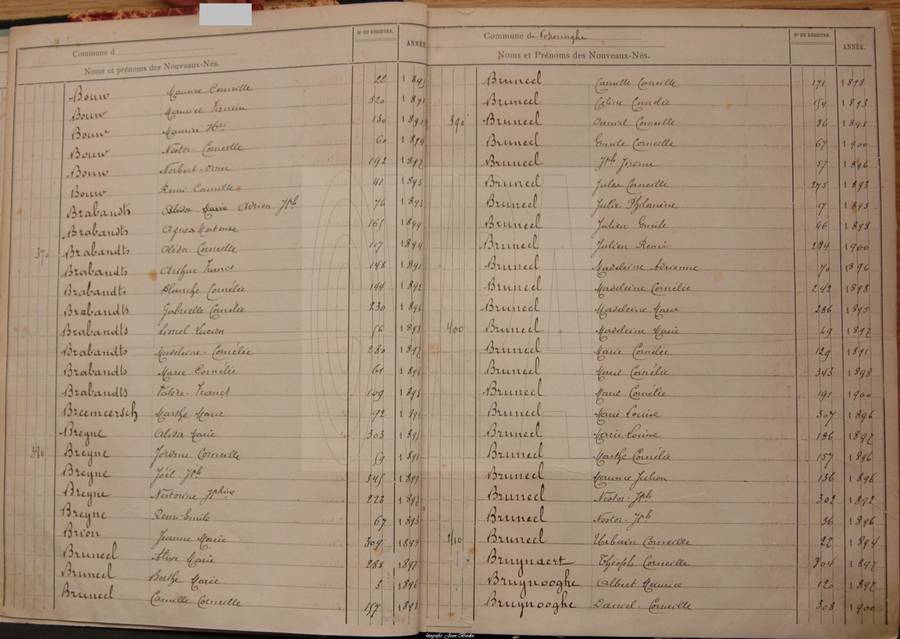 Commune d
N° DU REGISTRE.
ANNÉE
Noms et prénoms des Nouveaux-Nés.
Bouw Maurice Corneille 22 1895
Bouw Maurice Firmin 320 1891
Bouw Maurice Hri 130 1891
Bouw Nestor Corneille 60 1894
Bouw Norbert 192 1897
Bouw Remi Camille 41 1893
Brabandts Alida Marie Adrien Jph 76 1893
Brabandts Agnes Hortense 165 1899
370 Brabandts Alida Corneille 117 1894
Brabandts Arthur Franst 148 1891
Brabandts Blanche Cornélie 144 1892
Brabandts Gabrielle Cornélie 230 1896
Brabandts Lionel Lucien 56 1898
Brabandts Madeleine Cornélie 280 1897
Brabandts Marie Cornélie 61 1896
Brabandts Valère Franst 149 1893
Breemeersch Marthe Marie 92
Breyne Alida Marie 303
380 Breyne Jérôme Corneille 59 1891
Breyne Joël Jph 345
Breyne Nestorine Jphine 228
Breyne Remi Emile 67 1893
Brion Jeanne Marie 309
Bruneel Alixe Marie 288
Bruneel Berthe Marie 5 1896
Bruneel Camille Corneille 157
Commune de Poperinghe
N° DU REGISTRE.
ANNÉE.
Noms et Prénoms des Nouveaux-Nés.
Bruneel Camille Corneille 171 1898
Bruneel Céline Cornélie 154 1893
390 Bruneel Daniel Corneille 86 1895
Bruneel Emile Corneille 67 1900
Bruneel Jph Jérome 57 1896
Bruneel Jules Corneille 275 1893
Bruneel Julie Philomène 17 1895
Bruneel Julien Emile 46 1898
Bruneel Julien Remi 284 1900
Bruneel Madeleine Adrienne 70 1896
Bruneel Madeleine Cornélie 242 1898
Bruneel Madeleine Marie 286 1895
400 Bruneel Madeleine Marie 49 1897
Bruneel Marie Cornélie 129 1891
Bruneel Marie Cornélie 343 1898
Bruneel Marie Cornélie 191 1900
Bruneel Marie Louise 307 1896
Bruneel Marie Louise 136 1897
Bruneel Marthe Cornélie 157 1896
Bruneel Maurice Julien 136 1896
Bruneel Nestor Jph 302 1892
Bruneel Nestor Jph 36 1896
410 Bruneel Urbain Corneille 22 1894
Bruynaert Théoph Corneille 304 1897
Bruynooghe Albert Maurice 120 1897
Bruynooghe Daniel Corneille 308 1900